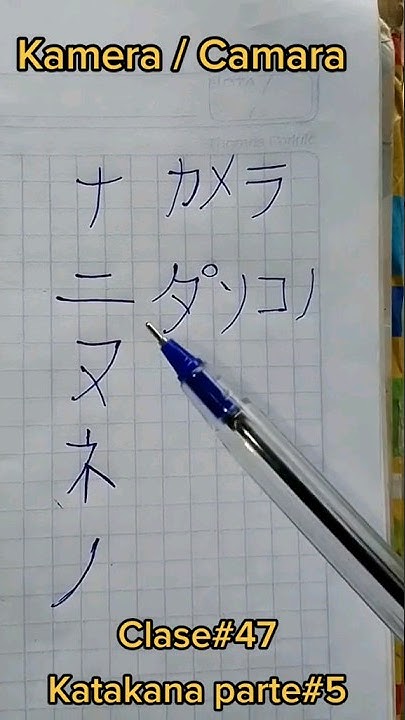 Kamera / Camara
ナ カメラ
ニ タ゚ソコノ
ヌ
ネ
ノ
Clase#47
Katakana parte#5